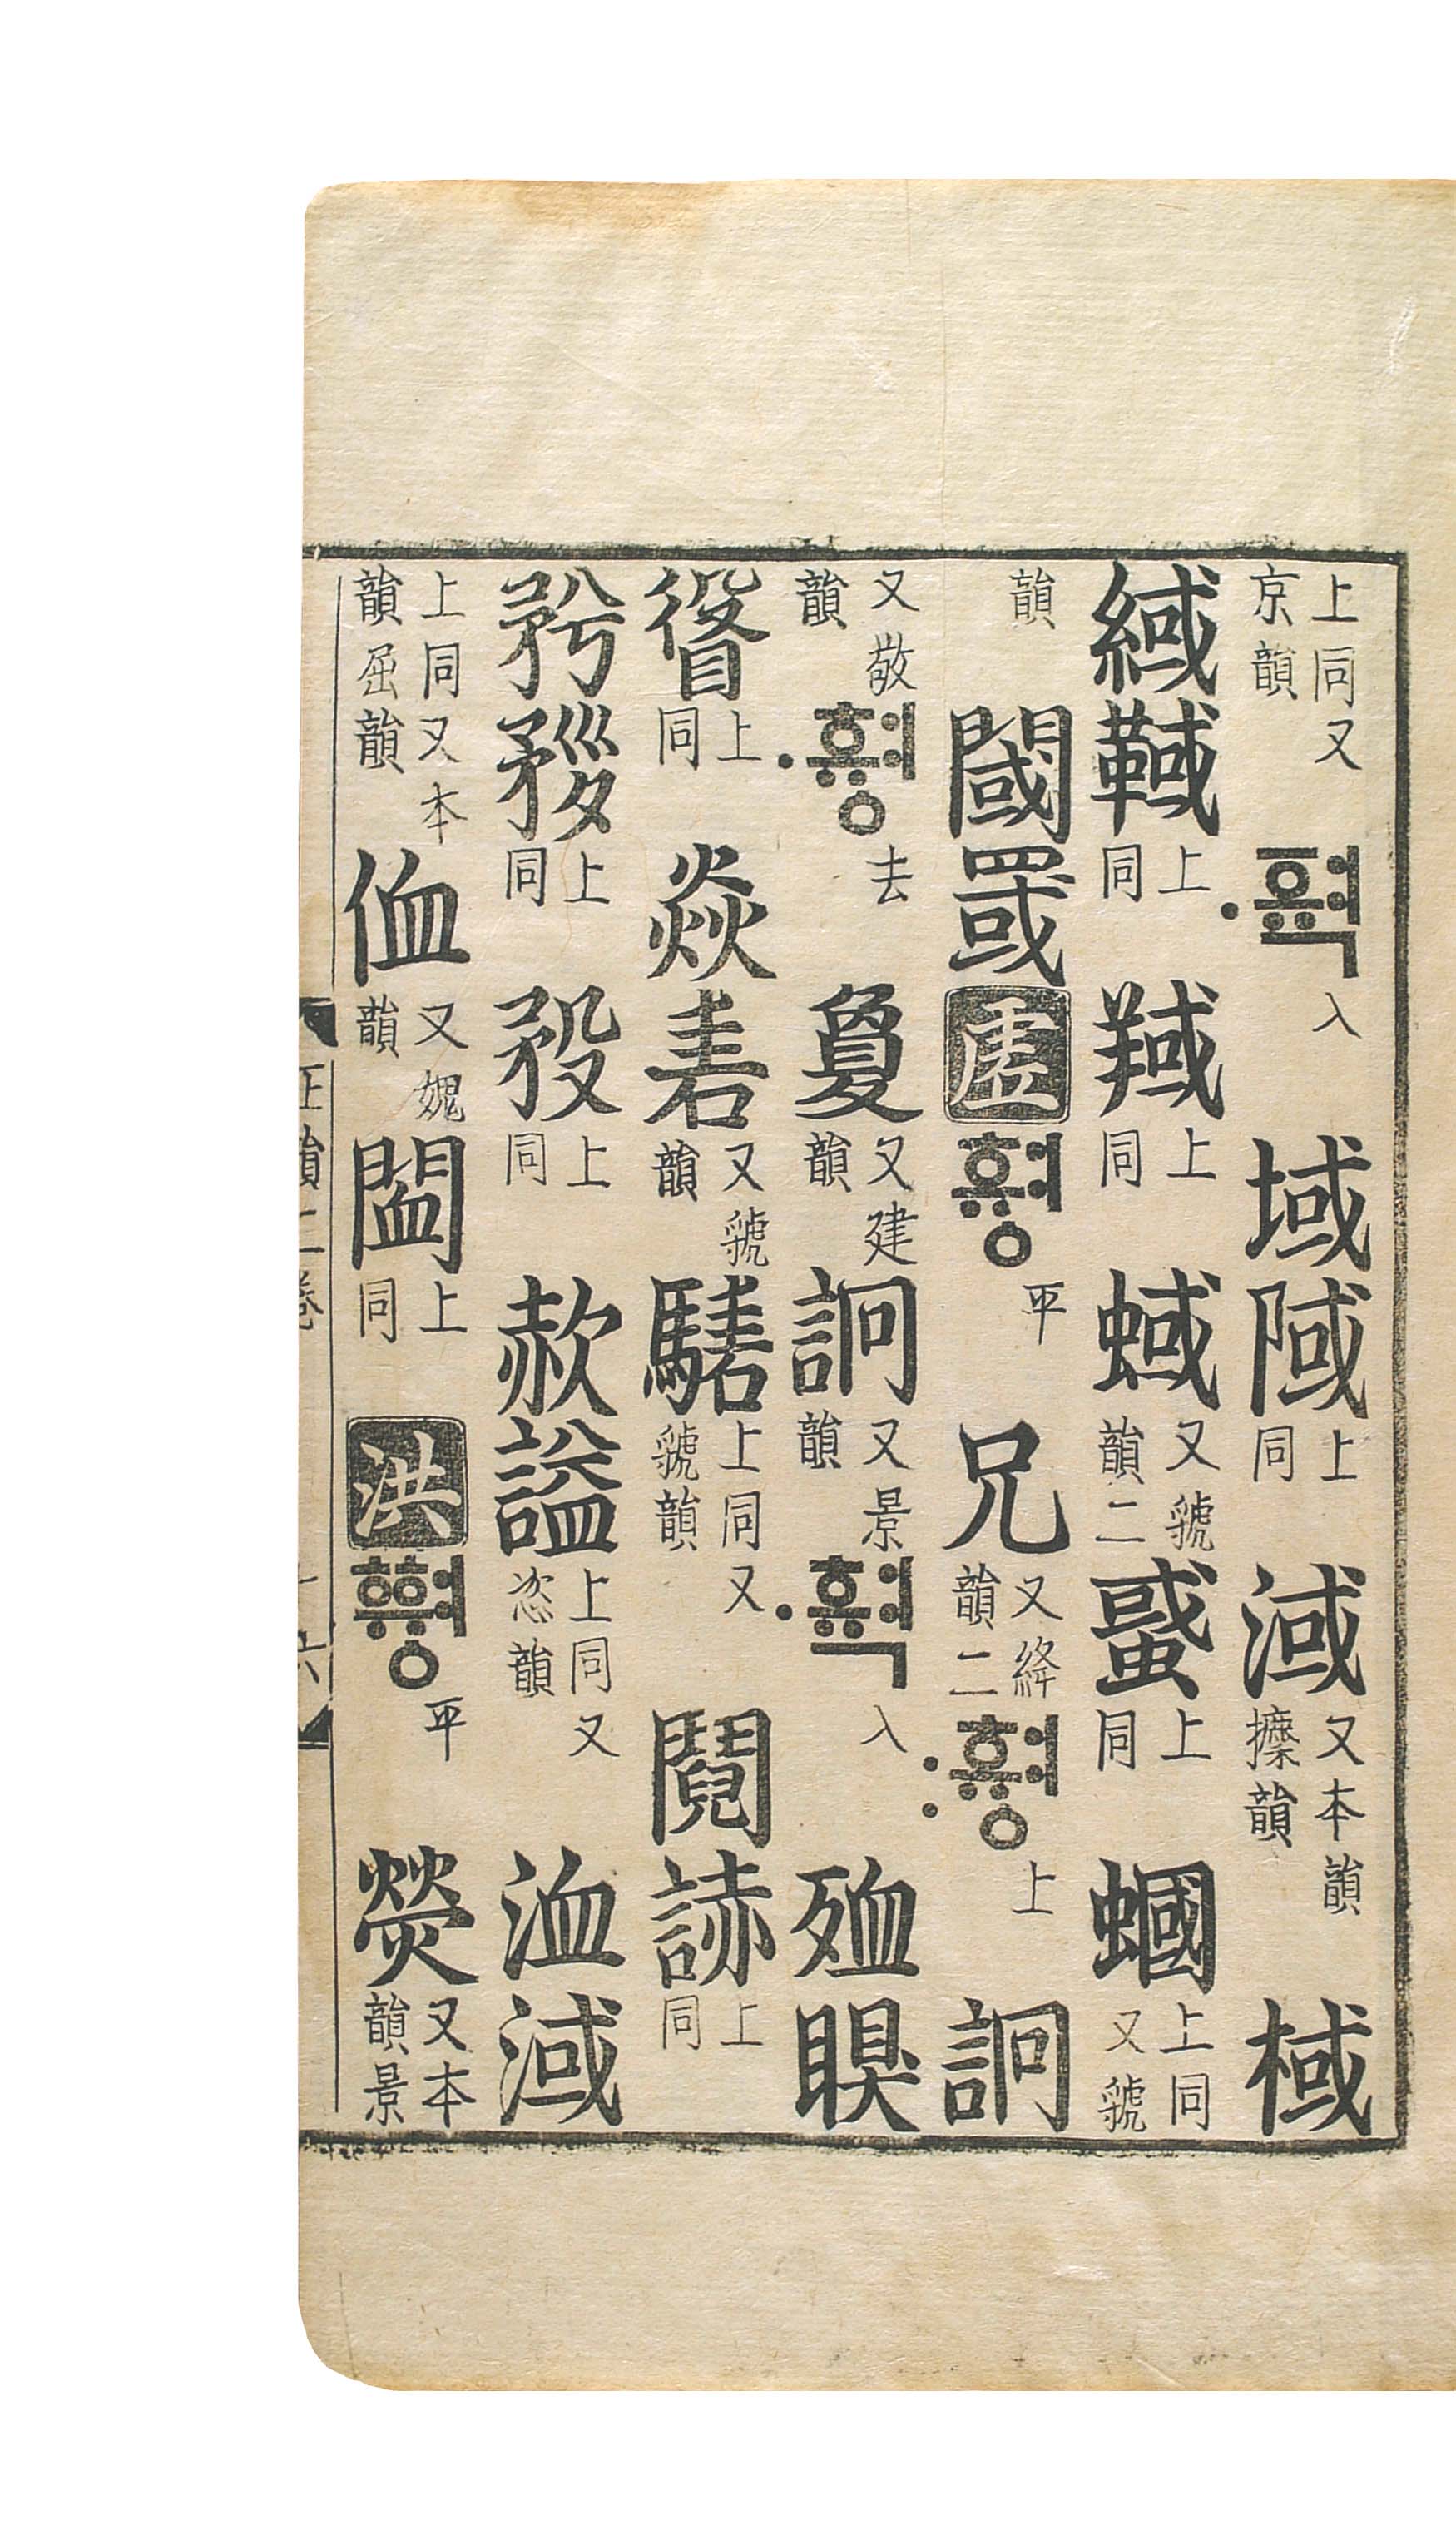 上同又京韻 ·ᅙᆑᆨ 入 域 上同 淢 又本韻擽韻 棫
緎 上同 上同 蜮 又虢韻二 上同 蟈 上同又虢
韻 閾罭 虛 ᄒᆑᇰ 平 兄 又絳韻二 :ᄒᆑᇰ 上 詗
又敬韻 ·ᄒᆑᇰ 去 敻 又建韻 詗 又景韻 ·ᄒᆑᆨ 入 殈瞁
上同 焱砉 又虢韻 騞 上同又虢韻 鬩 上同
上同 上同 謚 上同又恣韻 洫淢
上同又本韻屈韻 侐 又媿韻 上同 洪 ᅘᆑᇰ 平 熒 又本韻景
正韻二卷 十六